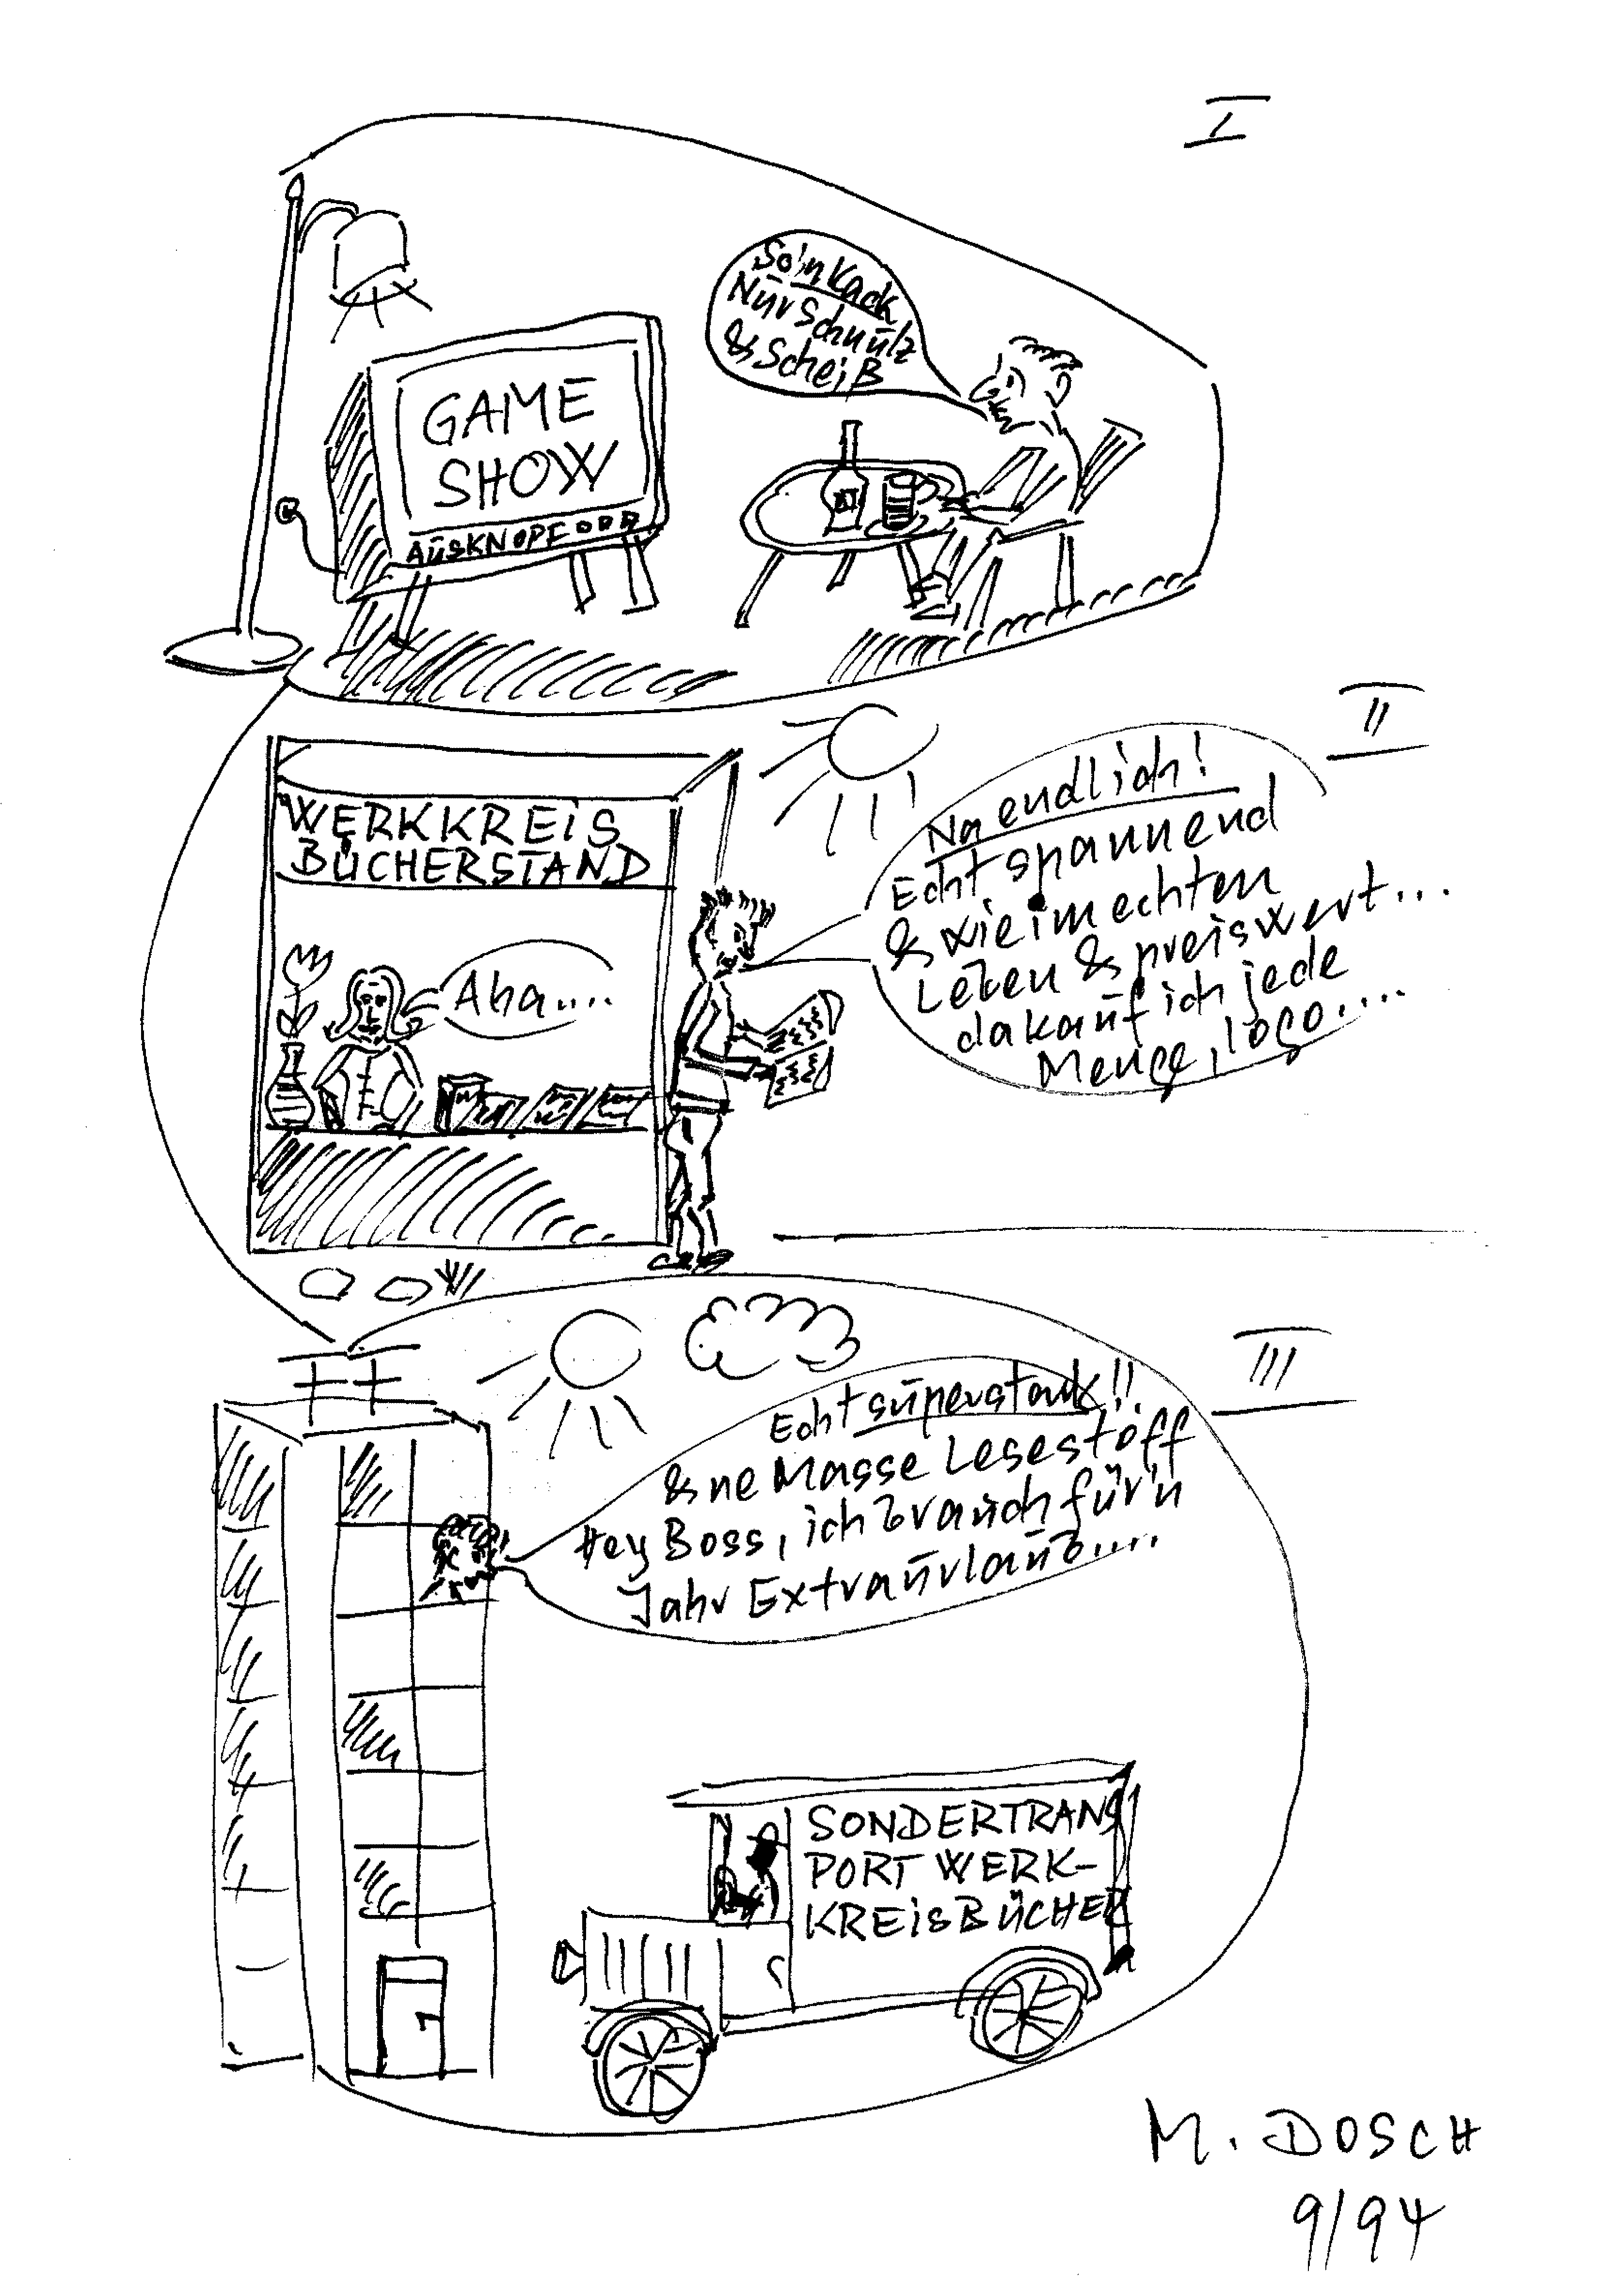 I
So'n Kack
Nur Schmulz
& Scheiß
GAME
SHOW
AUSKNOPF
II
WERKKREIS
BÜCHERSTAND
Aha....
Na endlich!
Echt spannend
& wie im echten
Leben & preiswert...
da kauf ich jede
Menge, logo....
III
Echt superstark!!
& ne Masse Lesestoff
Hey Boss, ich brauch für'n
Jahr Extraurlaub....
SONDERTRANS
PORT WERK-
KREISBÜCHER
M. DOSCH
9/94